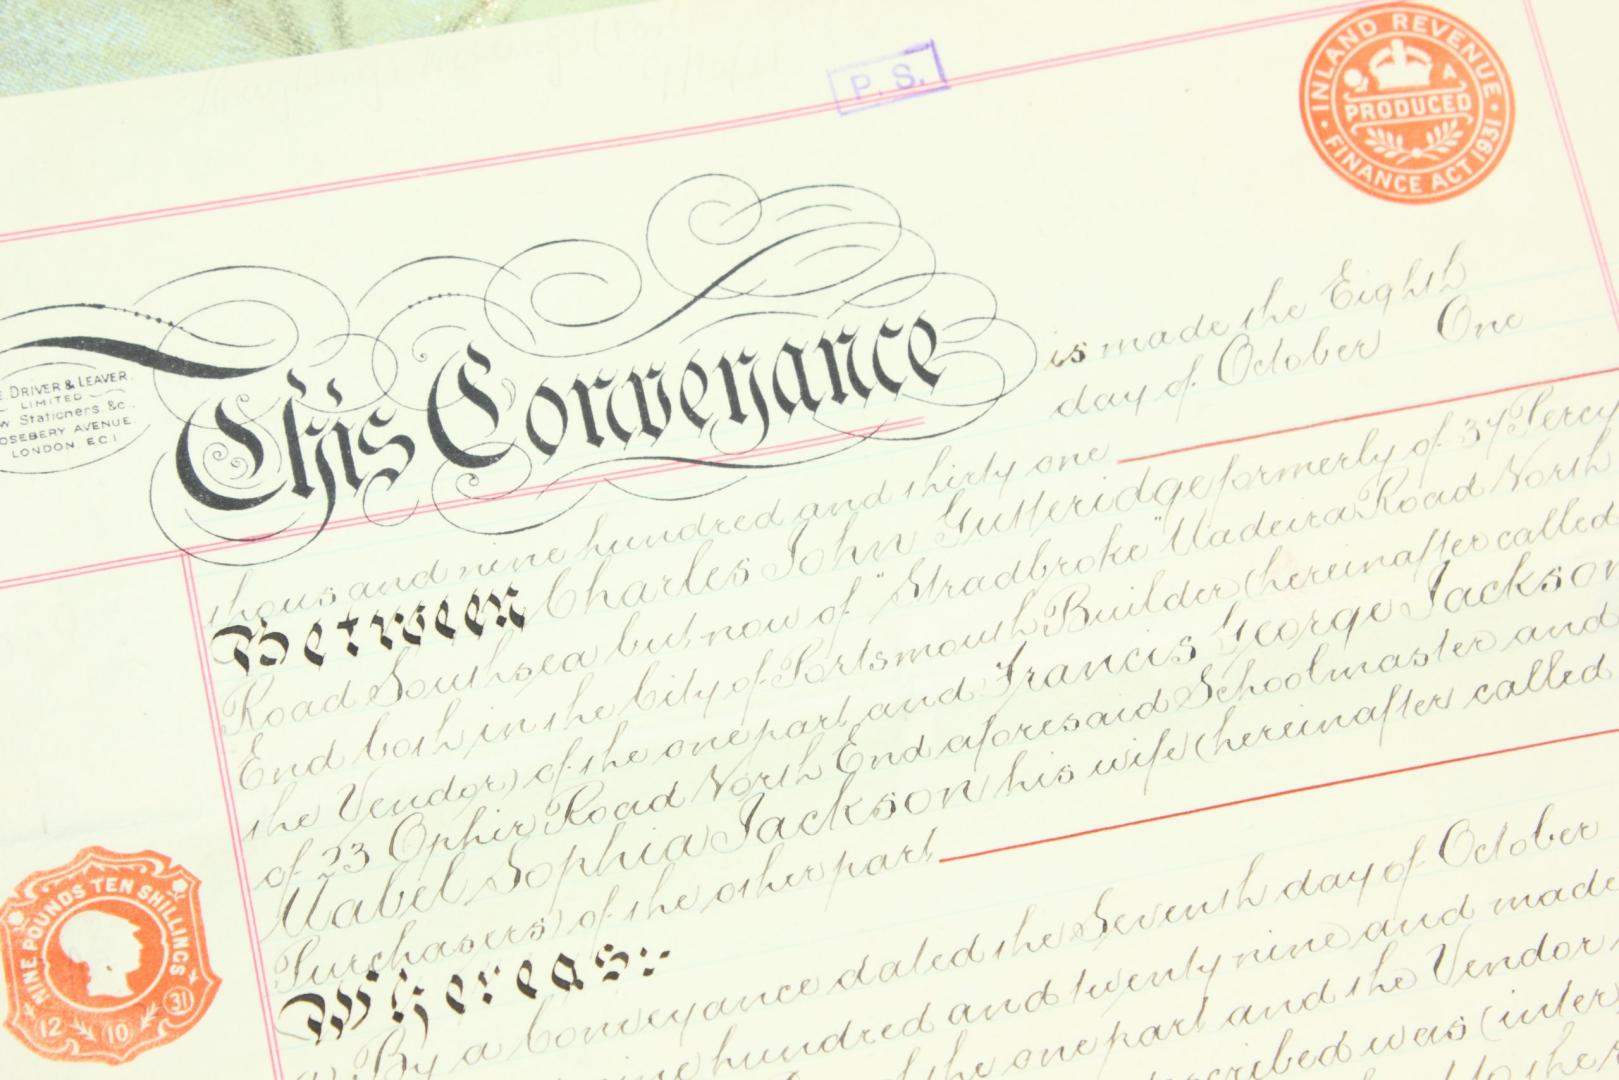 P. S.
INLAND REVENUE
A
PRODUCED
FINANCE ACT 1931
E. DRIVER & LEAVER.
LIMITED
w Stationers &c.
OSEBERY AVENUE
LONDON. E.C.1
This Conveyance is made the Eighth
day of October One
thousand nine hundred and thirty one
Between Charles John Gutteridge formerly of 37 Percy
Road Southsea but now of "Stradbroke" Madeira Road North
End both in the City of Portsmouth Builder (hereinafter called
the Vendor) of the one part and Francis George Jackson
of 23 Ophir Road North End aforesaid Schoolmaster and
Mabel Sophia Jackson his wife (hereinafter called
Purchasers) of the other part
Whereas:-
By a Conveyance dated the Seventh day of October
nine hundred and twenty nine and made
of the one part and the Vendor
was (inter
to the
NINE POUNDS TEN SHILLINGS
12 10 31